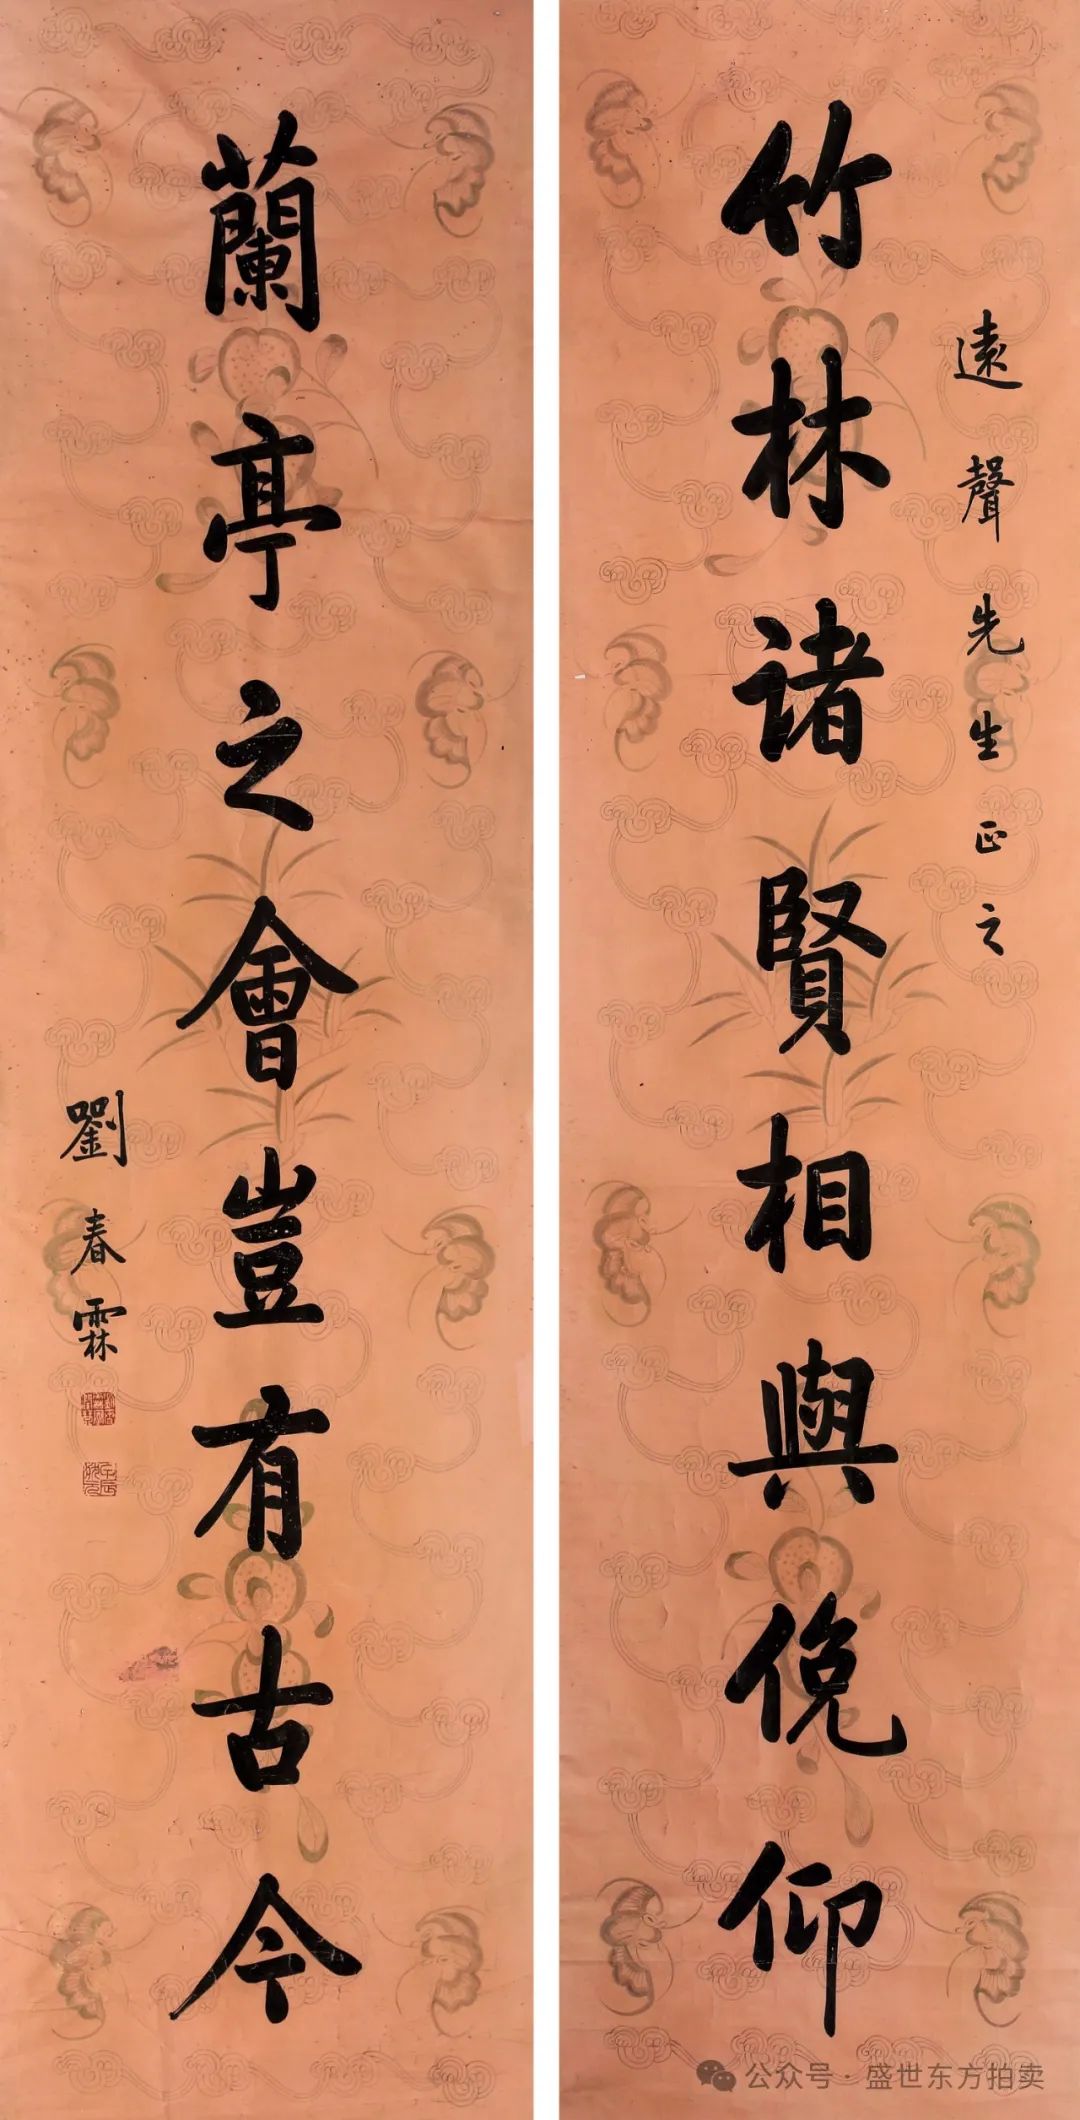 遠聲先生正之
竹林諸賢相與俛仰
蘭亭之會豈有古今
劉春霖
公众号·盛世东方拍卖